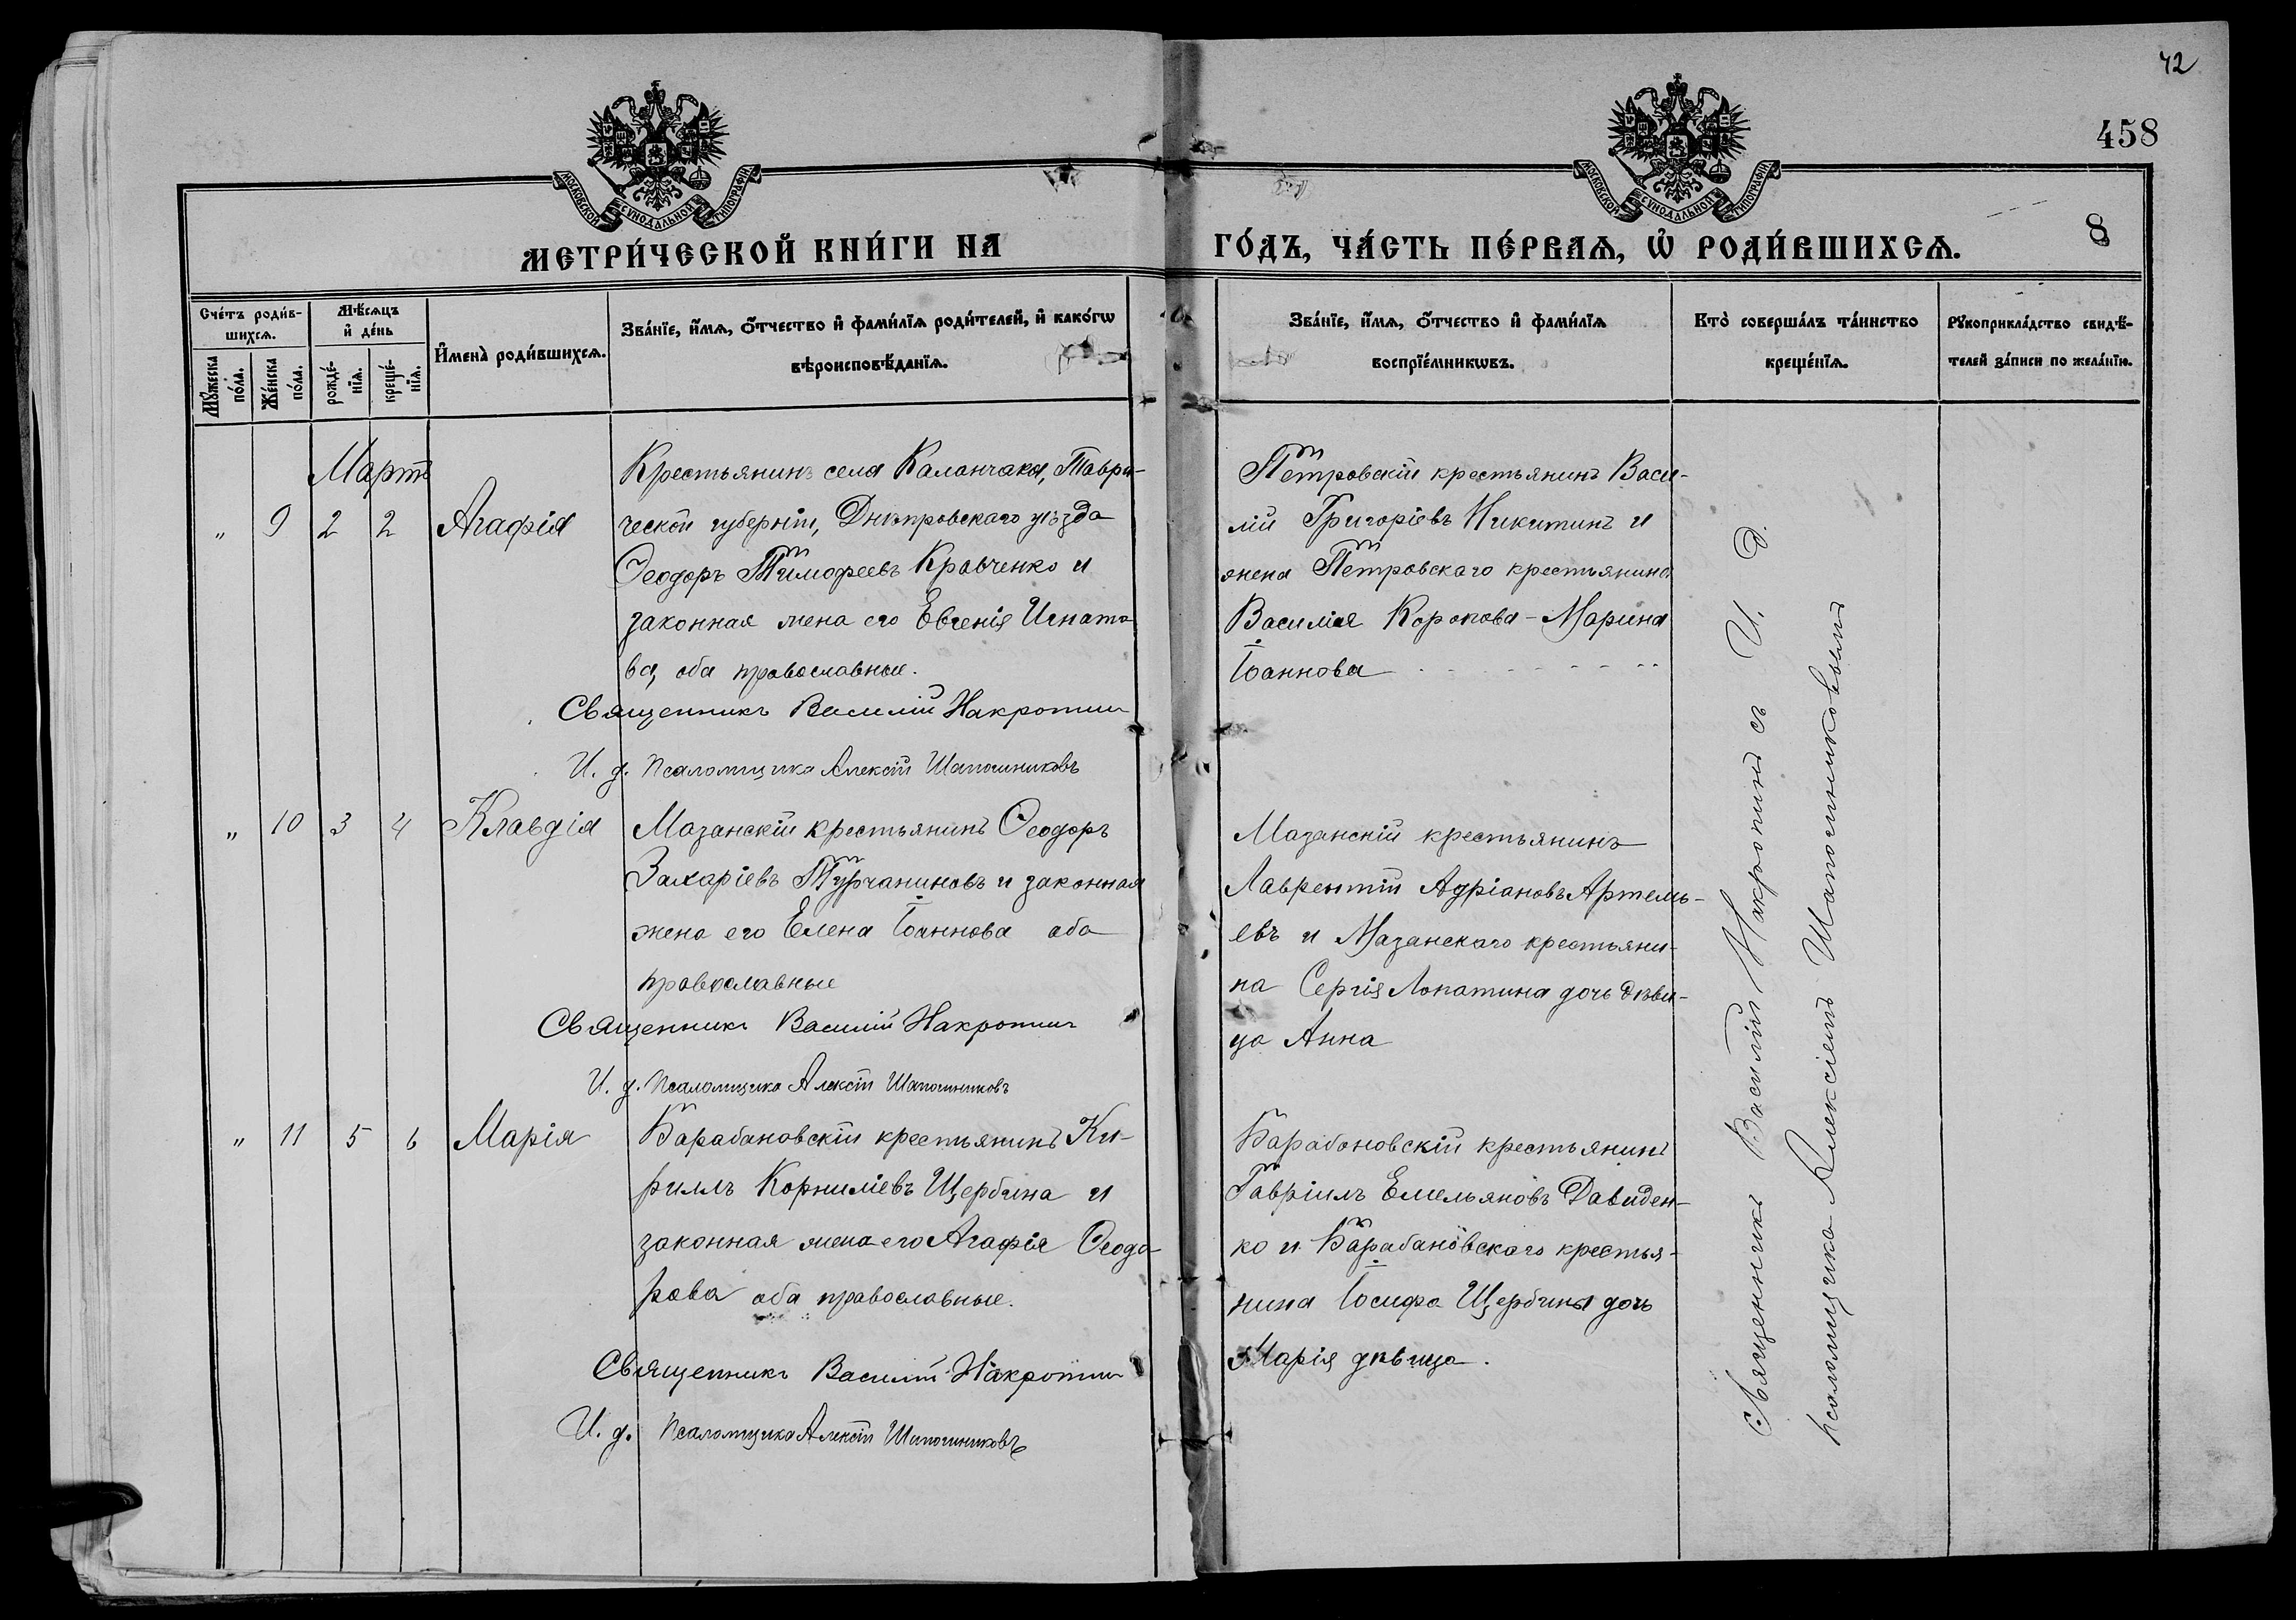 42
458
8
МОСКОВСКОЙ СѴНОДАЛЬНОЙ ТИПОГРАФІИ
МОСКОВСКОЙ СѴНОДАЛЬНОЙ ТИПОГРАФІИ
МЕТРИ́ЧЕСКОЙ КНИ́ГИ НА
ГО́ДЪ, ЧА́СТЬ ПЕ́РВАѦ, Ѡ҆ РОДИ́ВШИХСѦ.
Сче́тъ роди́в-
шихсѧ.
Мꙋ́жеска
по́ла.
Же́нска
по́ла.
Мѣ́сѧцъ
и҆ де́нь
рожде́-
нїѧ.
креще́-
нїѧ.
И҆мена̀ роди́вшихсѧ.
Зва́нїе, и҆́мѧ, ѻ҆́тчество и҆ фами́лїѧ роди́телей, и҆ како́гѡ
вѣроисповѣ́данїѧ.
Зва́нїе, и҆́мѧ, ѻ҆́тчество и҆ фами́лїѧ
воспрїе́мникѡвъ.
Кто̀ соверша́лъ та́инство
креще́нїѧ.
Рꙋкоприкла́дство свидѣ́-
телей за́писи по жела́нїю.
Мартъ
„ 9 2 2 Агафія
Крестьянинъ села Каланчака, Таври-
ческой губерніи, Днѣпровскаго уѣзда
Ѳеодоръ Тимофеевъ Кравченко и
законная жена его Евгенія Игнато-
ва, оба православные.
Священникъ Василій Накропин
И. д. Псаломщика Алексій Шапошниковъ
Петровскій крестьянинъ Васи-
лій Григоріевъ Никитинъ и
жена Петровскаго крестьянина
Василія Коропова - Марина
Іоаннова
„ 10 3 4 Клавдія
Мазанскій крестьянинъ Ѳеодоръ
Захаріевъ Турчаниновъ и законная
жена его Елена Іоаннова оба
православные
Священникъ Василій Накропин
И. д. Псаломщика Алексій Шапошниковъ
Мазанскій крестьянинъ
Лаврентій Адріановъ Артемь-
евъ и Мазанскаго крестьяни-
на Сергія Лопатина дочь дѣви-
ца Анна
„ 11 5 6 Марія
Барабановскій крестьянинъ Ки-
риллъ Корниліевъ Щербина и
законная жена его Агафія Ѳеодо-
рова оба православные.
Священникъ Василій Накропин
И. д. Псаломщика Алексій Шапошниковъ
Барабановскій крестьянинъ
Гавріилъ Емельяновъ Давиден-
ко и Барабановскаго крестья-
нина Іосифа Щербины дочь
Марія дѣвица.
Священникъ Василій Накропинъ съ И. д.
псаломщика Алексіемъ Шапошниковымъ